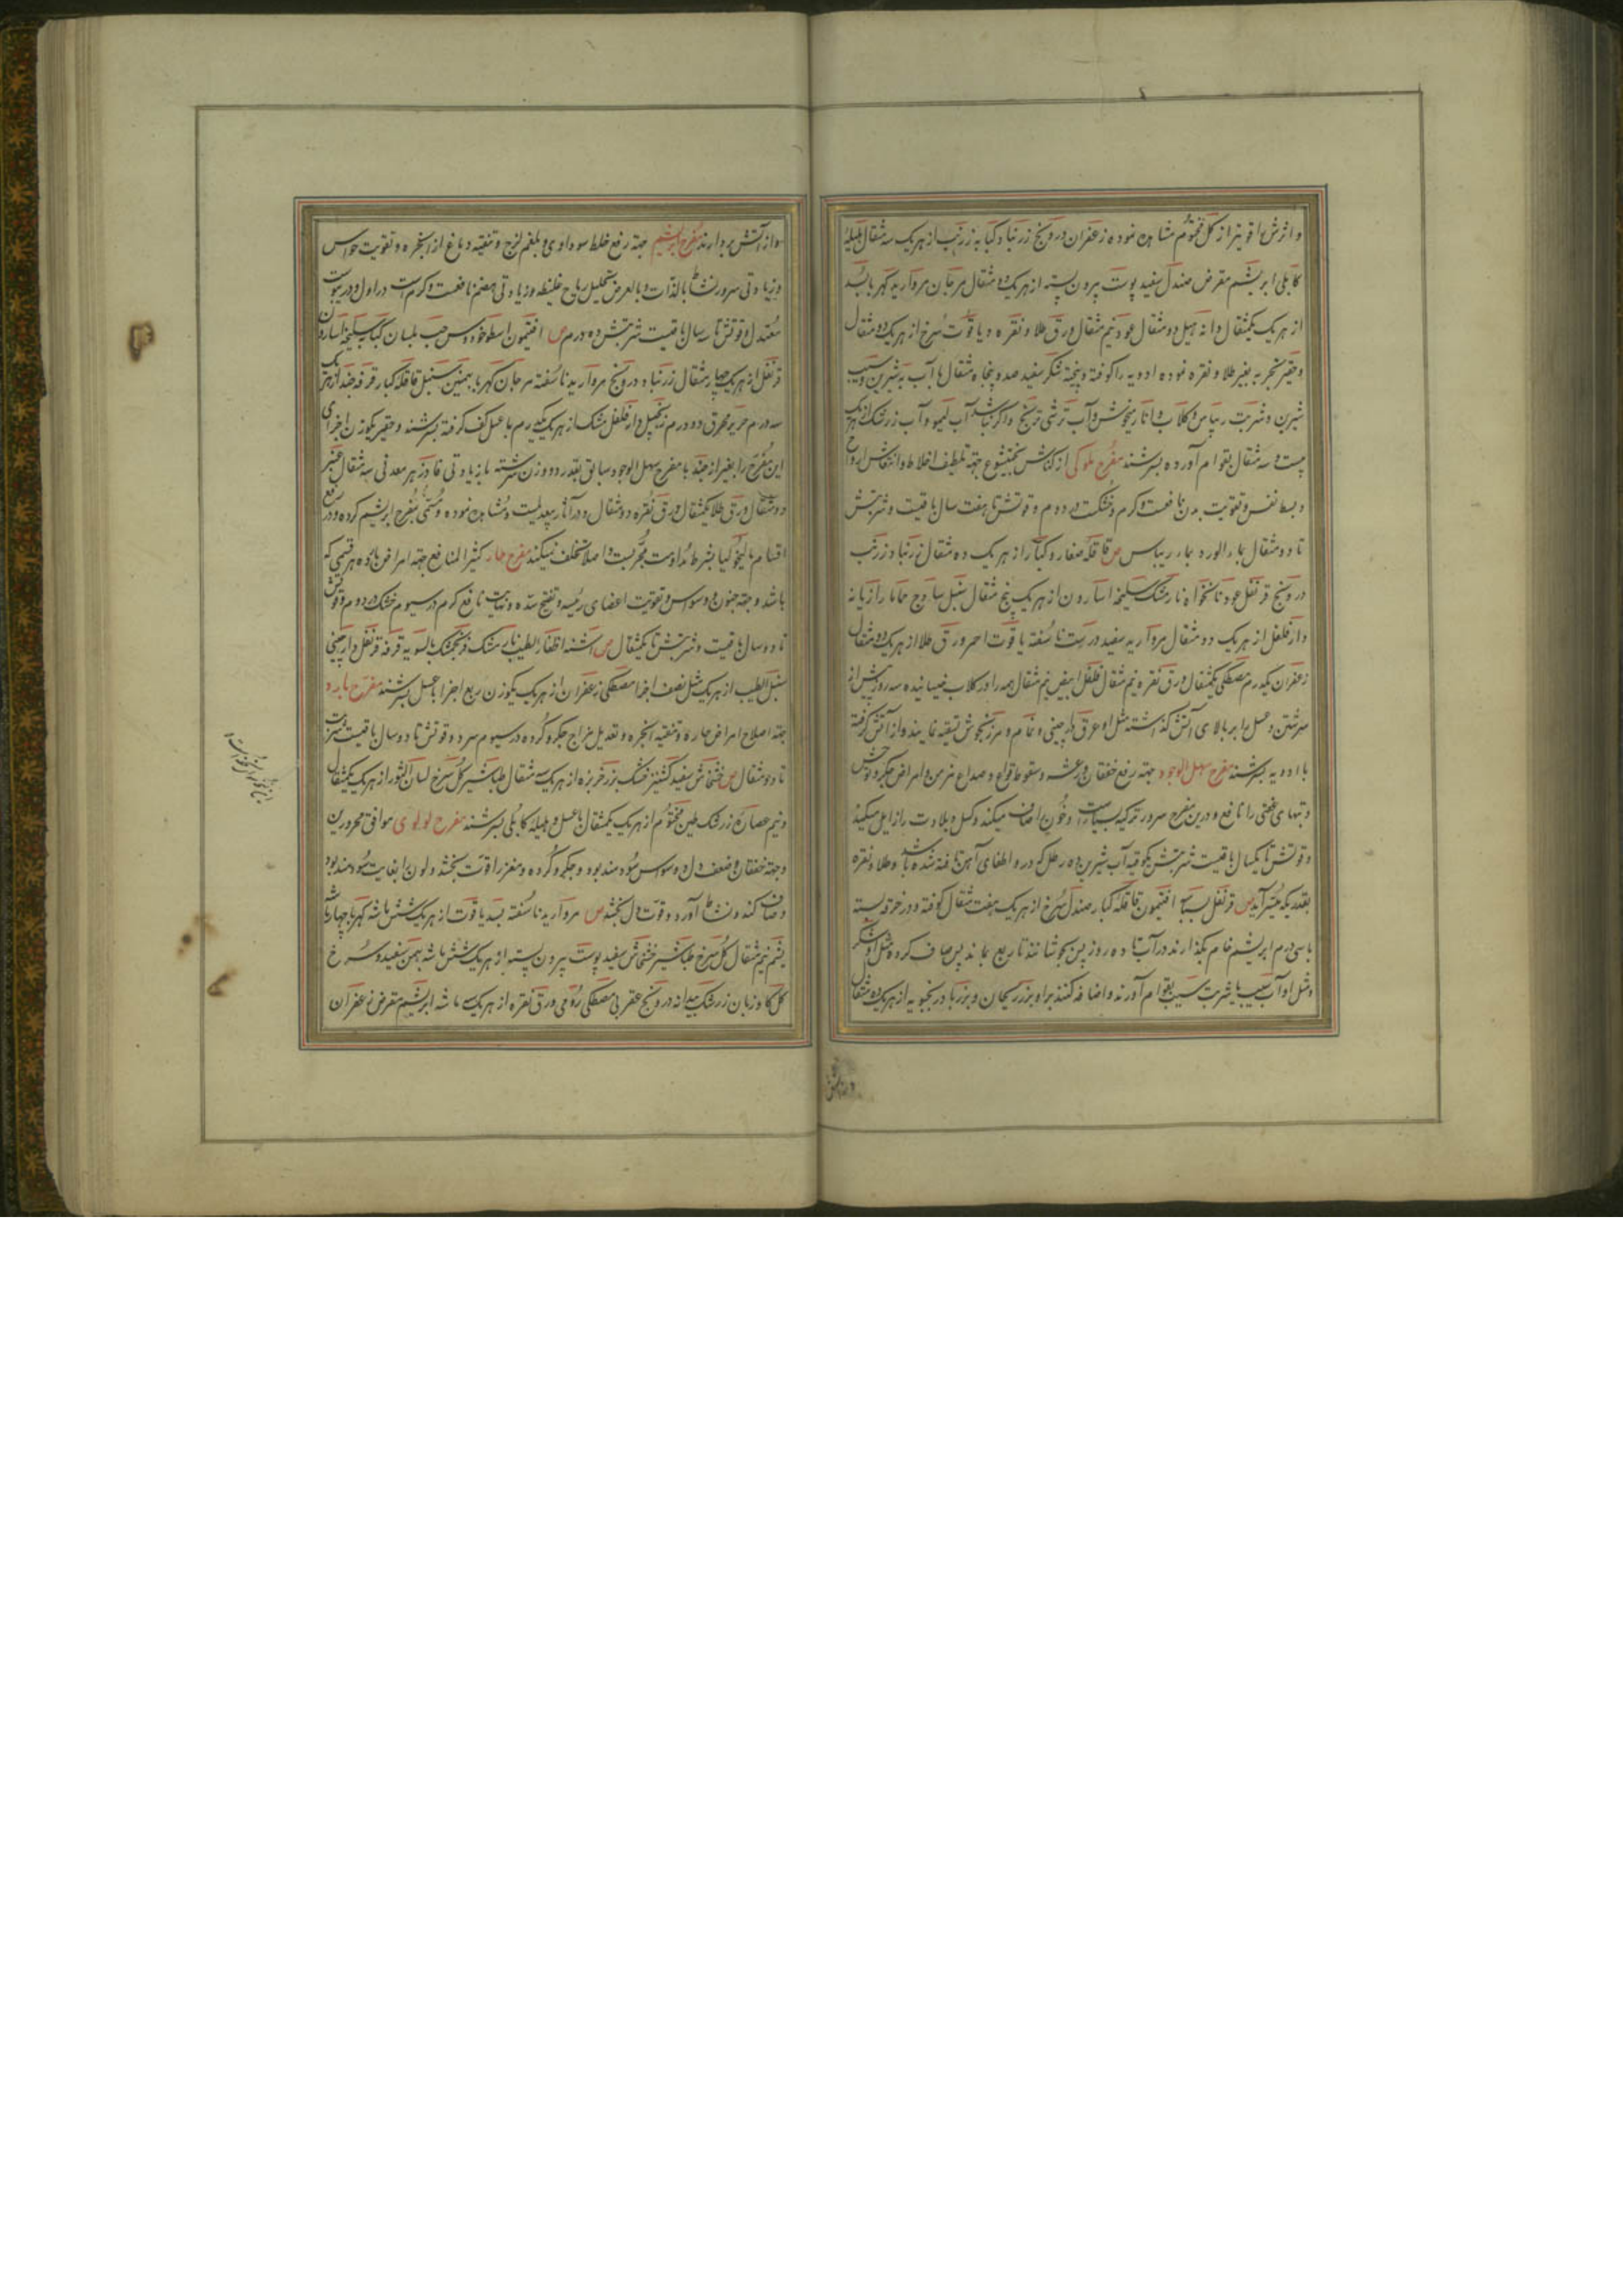 و اثرش را قویتر از گل مختوم مشاهده نموده زعفران درونج زرنباد کبابه زرنب از هر یک سه مثقال هلیله
کابلی ابریشم مقرض صندل سفید پوست بیرون پسته از هر یک دو مثقال مرجان مروارید کهربا بسد
از هر یک یکمثقال دانه هیل دو مثقال عود نیم مثقال ورق طلا و نقره و یاقوت سرخ از هر یک دو مثقال
و حقیر تجربه بغیر طلا و نقره نموده ادویه را کوفته و بیخته شکر سفید صد و پنجاه مثقال با آب به شیرین و سیب
شیرین و شربت ریباس و گلاب و انار میخوش و آب ترشی ترنج و اگر نباشد آب لیمو و آب زرشک از هر یک
بیست و سه مثقال بقوام آورده بسرشند مفرح ملوکی از کناش بختیشوع جهة تلطیف اخلاط و انتعاش ارواح
و بسط نفس و تقویت بدن نافعست و گرم و خشکست در دوم و قوتش تا هفت سال باقیست و شربتش
تا دو مثقال بماء الورد بماء ریباس ص قاقله صغار و کبار از هر یک ده مثقال زرنباد زرنب
درونج قرنفل عود نانخواه نارمشک سلیخه اسارون از هر یک پنج مثقال سنبل ساذج حماما رازیانه
دارفلفل از هر یک دو مثقال مروارید سفید درست ناسفته یاقوت احمر ورق طلا از هر یک دو مثقال
زعفران یکدرم مصطکی یکمثقال ورق نقره نیم مثقال فلفل ابیض نیم مثقال همه را در گلاب خیسانیده سه روز پیش از
سرشتن و عسل را بر بالای آتش گذاشته مثل او عرق دارچینی و نمام و مرزنجوش تسقیه نمایند و از آتش گرفته
با ادویه بسرشند مفرح سهل الوجود جهة رفع خفقان و رعشه و سقوط قوای و صداع مزمن و امراض جگر و توحش
و تبهای عفنی را نافع و درین مفرح سرور ترکیه بسیارست و خون را صاف میکند و کسل و بلادت را زایل میکند
و قوتش تا یکسال باقیست شربتش یکوقیه آب شیرین ده رطل که در او اطفای آهن تافته شده باشد و طلا و نقره
بقدریکه میسر آید ص قرنفل بسباسه افتیمون قاقله کبار صندل سرخ از هر یک هفت مثقال کوفته و در خرقه بسته
با سی درم ابریشم خام بگذارند در آب تا ده روز پس بجوشانند تا ربع بماند پس صاف کرده مثل او شکر
و مثل او آب سیب یا شربت سیب بقوام آورند و اضافه کنند براو بزر ریحان و بزر بادرنجبویه از هر یک ده مثقال
و از آتش بردارند مفرح ابریشم جهة رفع خلط سوداوی و بلغم لزج و تنقیه دماغ از ابخره و تقویت حواس
و زیادتی سرور و نشاط بالذات و بالعرض تحلیل ریاح غلیظه و زیادتی هضم نافعست و گرمست در اول و در یبوست
معتدل و قوتش تا سه سال باقیست شربتش ده درم ص افتیمون اسطوخودوس حب بلسان کبابه سلیخه اسارون
قرنفل از هر یک چهار مثقال زرنباد درونج مروارید ناسفته مرجان کهربا بهمنین سنبل قاقله کبار قرفه جند از هر یک
سه درم حریر محرق دو درم زنجبیل دارفلفل مشک از هر یک یکدرم با عسل کف گرفته بسرشند و حقیر یکوزن اجزای
این مفرح را بغیر از جند با مفرح سهل الوجود سابق بقدر دو وزن سرشته با زیادتی فادزهر معدنی سه مثقال عنبر
دو مثقال ورق طلا یکمثقال ورق نقره دو مثقال و در آثار بیعدیلست و مشاهده نموده و مسمی بمفرح ابریشم کرده و در رفع
اقسام مالیخولیا بشرط مداومت مجربست و اصلا تخلف نمیکند مفرح حار کثیر المنافع جهة امراض بارده هر قسمی که
باشد و جهة جنون و وسواس و تقویت اعضای رئیسه و تفتیح سده و بغایت نافع گرم در سیوم خشک در دوم و قوتش
تا دو سال باقیست و شربتش تا یکمثقال ص اشنه اظفار الطیب نارمشک فرنجمشک بالسویه قرفه قرنفل دارچینی
سنبل الطیب از هر یک مثل نصف اجزا مصطکی زعفران از هر یک یکوزن ربع اجزا با عسل بسرشند مفرح بارد
جهة اصلاح امراض حاره و تنقیه ابخره و تعدیل مزاج جگر و گرده در سیوم سرد و قوتش تا دو سال باقیست شربت
تا دو مثقال ص خشخاش سفید گشنیز خشک بزر خرفه از هر یک سه مثقال طباشیر گل سرخ لسان الثور از هر یک یکمثقال
و نیم عصاره زرشک طین مختوم از هر یک یکمثقال با عسل و هلیله کابلی بسرشند مفرح لولوی موافق محرورین
و جهة خفقان و ضعف دل و وسواس سودمند بود و جگر و گرده و مغز را قوت بخشد و لون را بغایت سودمند بود
و صاف کند و نشاط آورد و قوت دل بخشد ص مروارید ناسفته بسد یاقوت از هر یک شش ماشه کهربا چهار ماشه
یشم نیم مثقال گل سرخ طباشیر خشخاش سفید پوست بیرون پسته از هر یک شش ماشه بهمن سفید و سرخ
گل گاوزبان زرشک بیدانه درونج عقربی مصطکی رومی ورق نقره از هر یک سه ماشه ابریشم مقرض زعفران